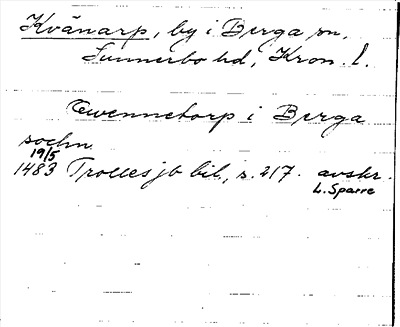 Kvänarp, by i Berga sn,
Sunnerbo hd, Kron. l.
Qwennetorp i Berga
sochn
19/5
1483 Trolles jb bil., s. 217. avskr.
L. Sparre